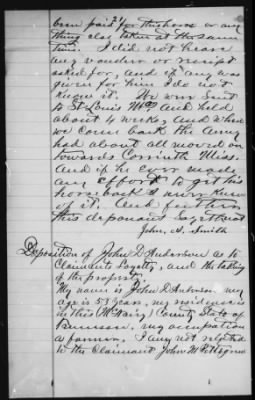 been paid for this horse or any
thing else taken at the same
time. I did not hear
any voucher or receipt
asked for, and if any was
given for him I do not
know it. We were sent
to St Louis Mo and held
about 4 weeks, and when
we come back the Army
had about all moved on
towards Corinth Miss.
And if he ever made
any effort to get his
horse back I never knew
of it. And further
this deponant sayeth not
John, A, Smith
Deposition of John D Anderson as to
Claimants Loyalty, and the taking
of the property
My name is John D Anderson my
age is 53 years, my residence is
in this (McNairy) County State of
Tennessee, my occupation
a farmer. I am not related
to the Claimant John M